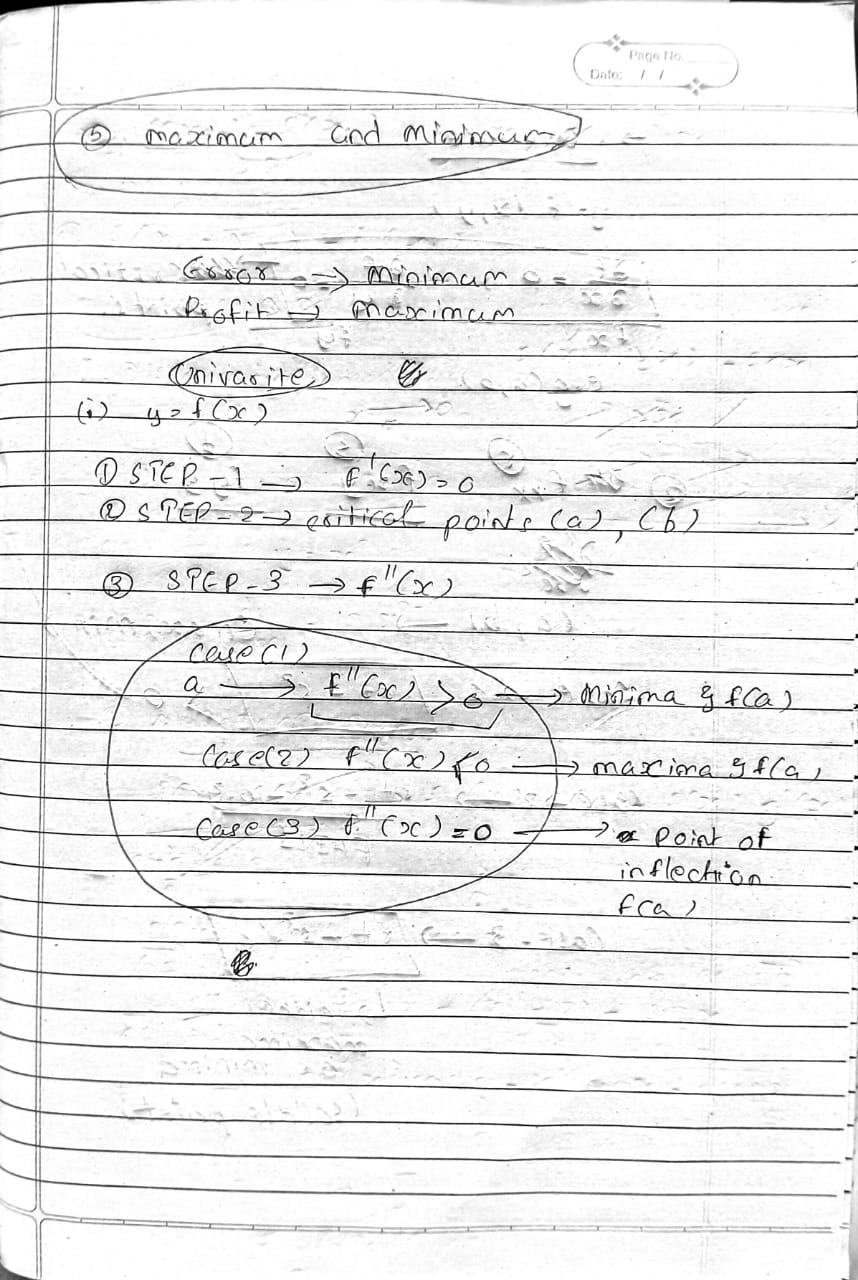 Page No.
Date: / /
⑤ maximum and minimum
Error → Minimum
Profit → maximum
Univarite
(i) y = f(x)
① STEP-1 → f'(x) = 0
② STEP-2 → critical points (a), (b)
③ STEP-3 → f"(x)
Case (1)
a → f"(x) > 0 → Minima & f(a)
Case(2) f"(x) < 0 → maxima & f(a)
Case (3) f"(x) = 0 → Point of
inflection
f(a)